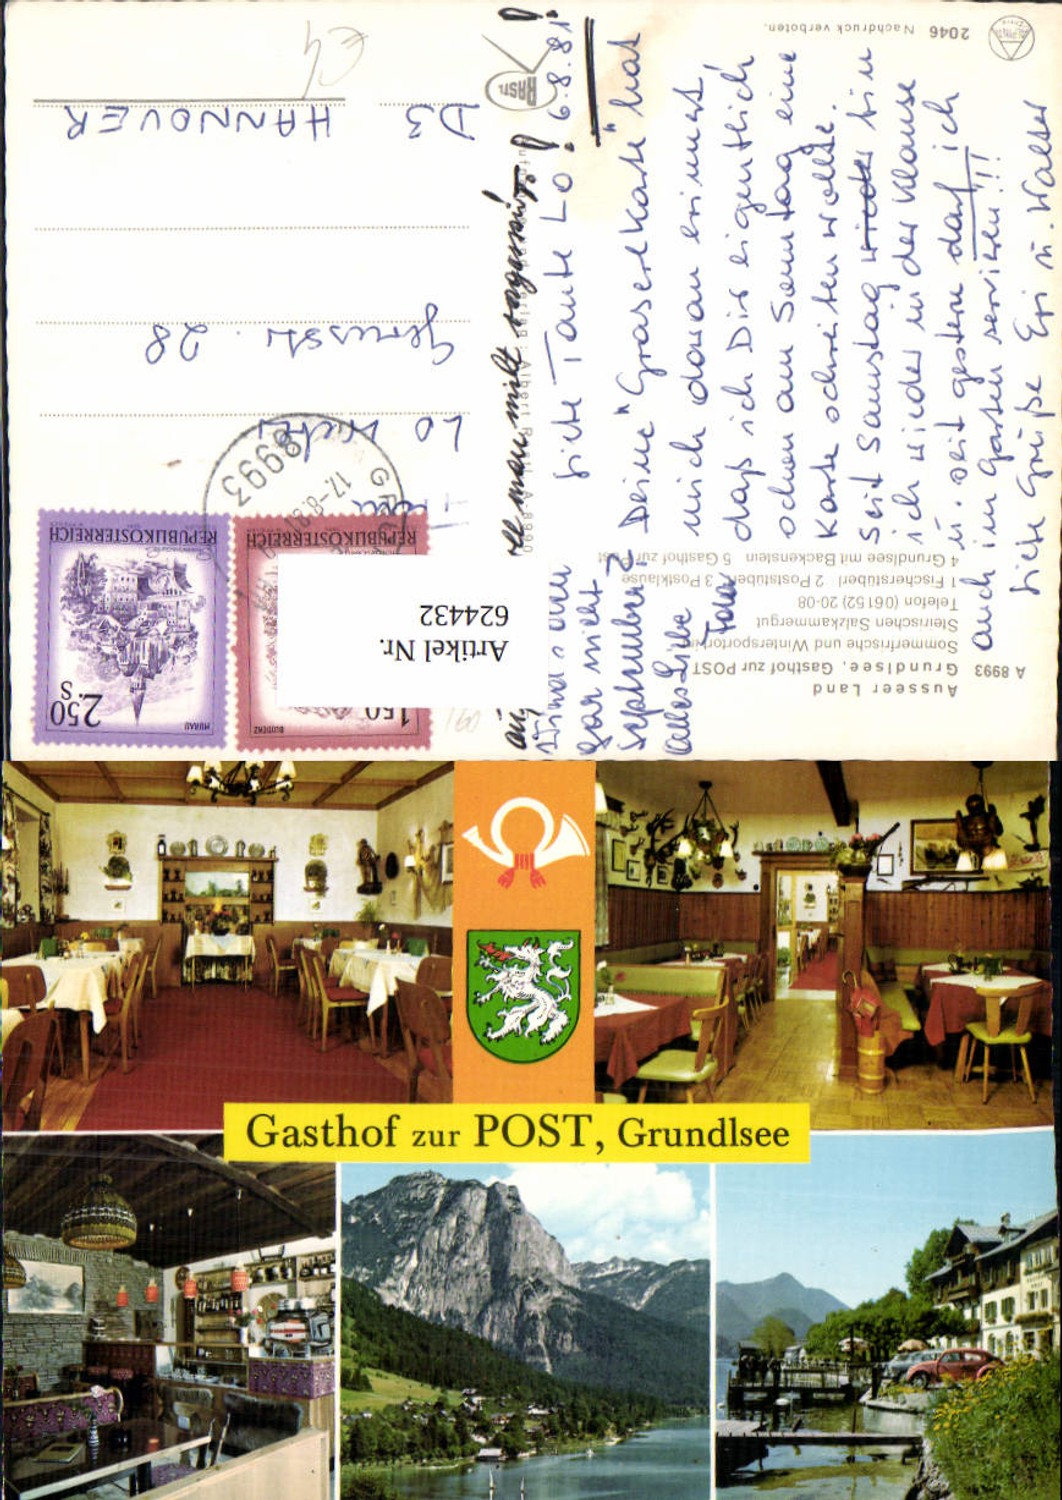 2046 Nachdruck verboten.
ALPIN
RASTL
6.8.81!
Liebe Tante Lo!
Deine "Graserkarte" hat
mich daran erinnert,
daß ich Dir eigentlich
schon am Sonntag eine
Karte schreiben wollte.
Seit Samstag wieder bin
ich wieder in der Klause
u. seit gestern darf ich
auch im Garten servieren!!!
Liebe Grüße Evi u. Walter
gar nicht
September?
Alles Liebe
D3 HANNOVER
28
Lo
8993
17.-8.81
REPUBLIK ÖSTERREICH
2.50 S
MURAU
REPUBLIK ÖSTERREICH
1.50
BLUDENZ
Artikel Nr.
624432
Ausseer Land
A 8993 Grundlsee, Gasthof zur POST
Sommerfrische und Wintersportort im
Steirischen Salzkammergut
Telefon (06152) 20-08
1 Fischerstüberl 2 Poststüberl 3 Postklause
4 Grundlsee mit Backenstein 5 Gasthof zur Post
Gasthof zur POST, Grundlsee